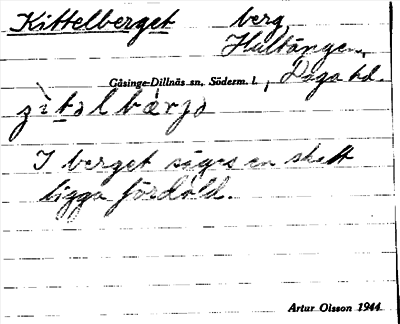 Kittelberget berg
Hultängen,
Gåsinge-Dillnäs sn, Söderm. l., Daga hd.
I berget säges en skatt
ligga fördold.
Artur Olsson 1944